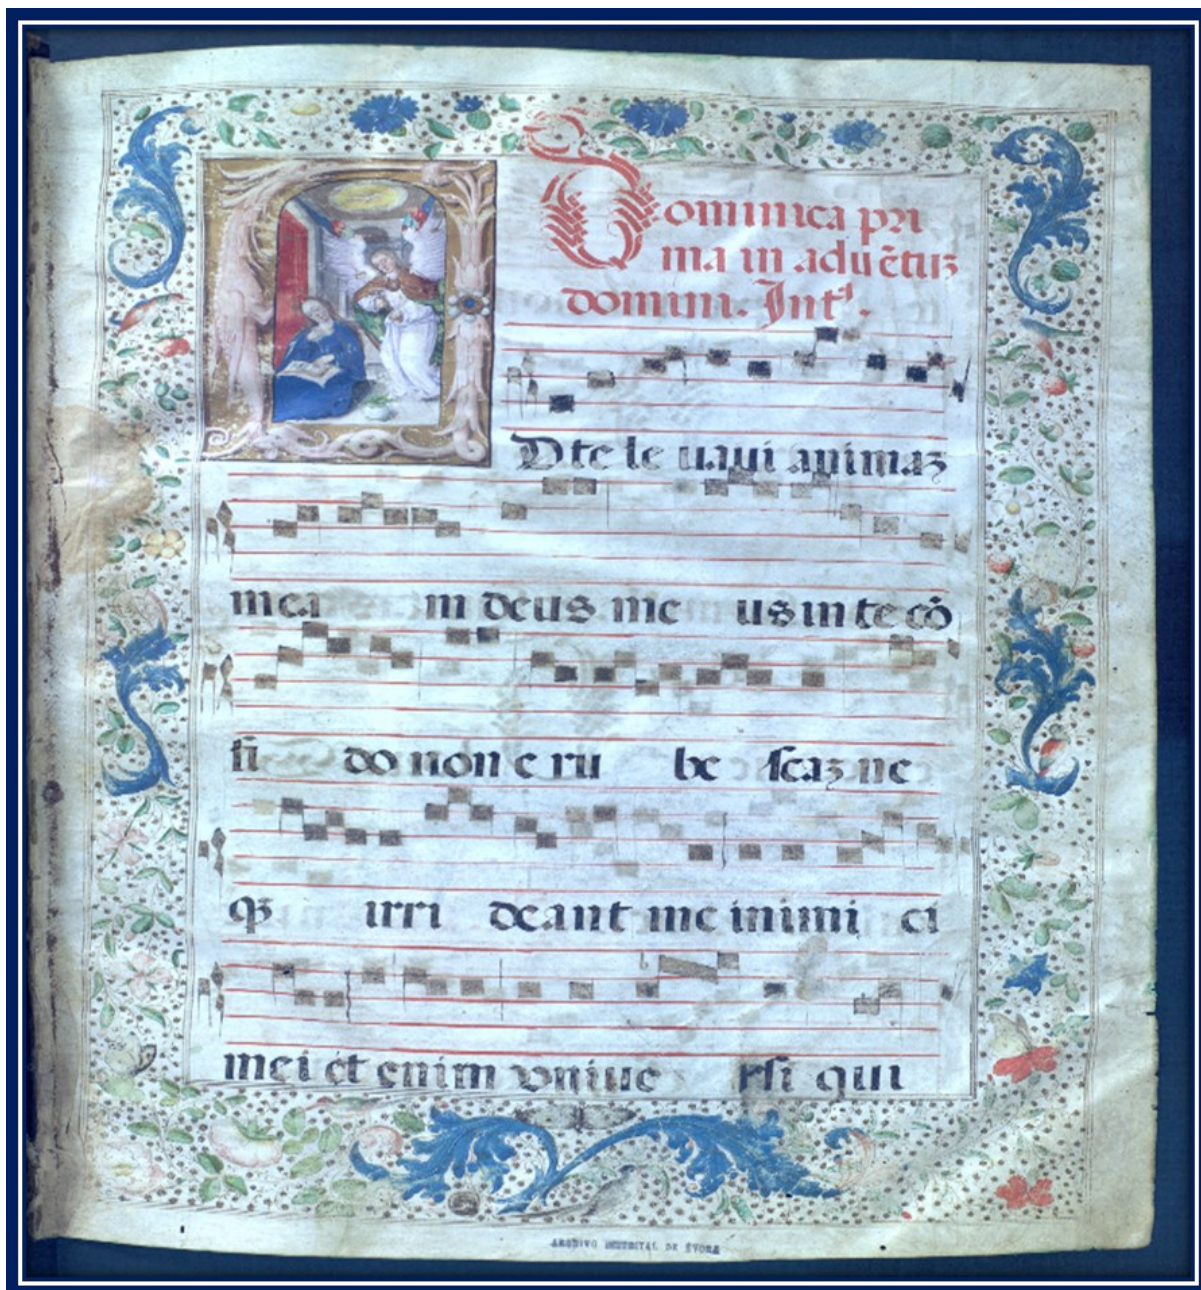 Dominica pri
ma in aduẽtuꝫ
domini. Intꝰ.
D te le uaui animaꝫ
mea m deus me us in te cõ
fi do non e ru be ſcaꝫ ne
qꝫ irri deant me inimi ci
mei et enim vniue rſi qui
ARQUIVO DISTRITAL DE ÉVORA